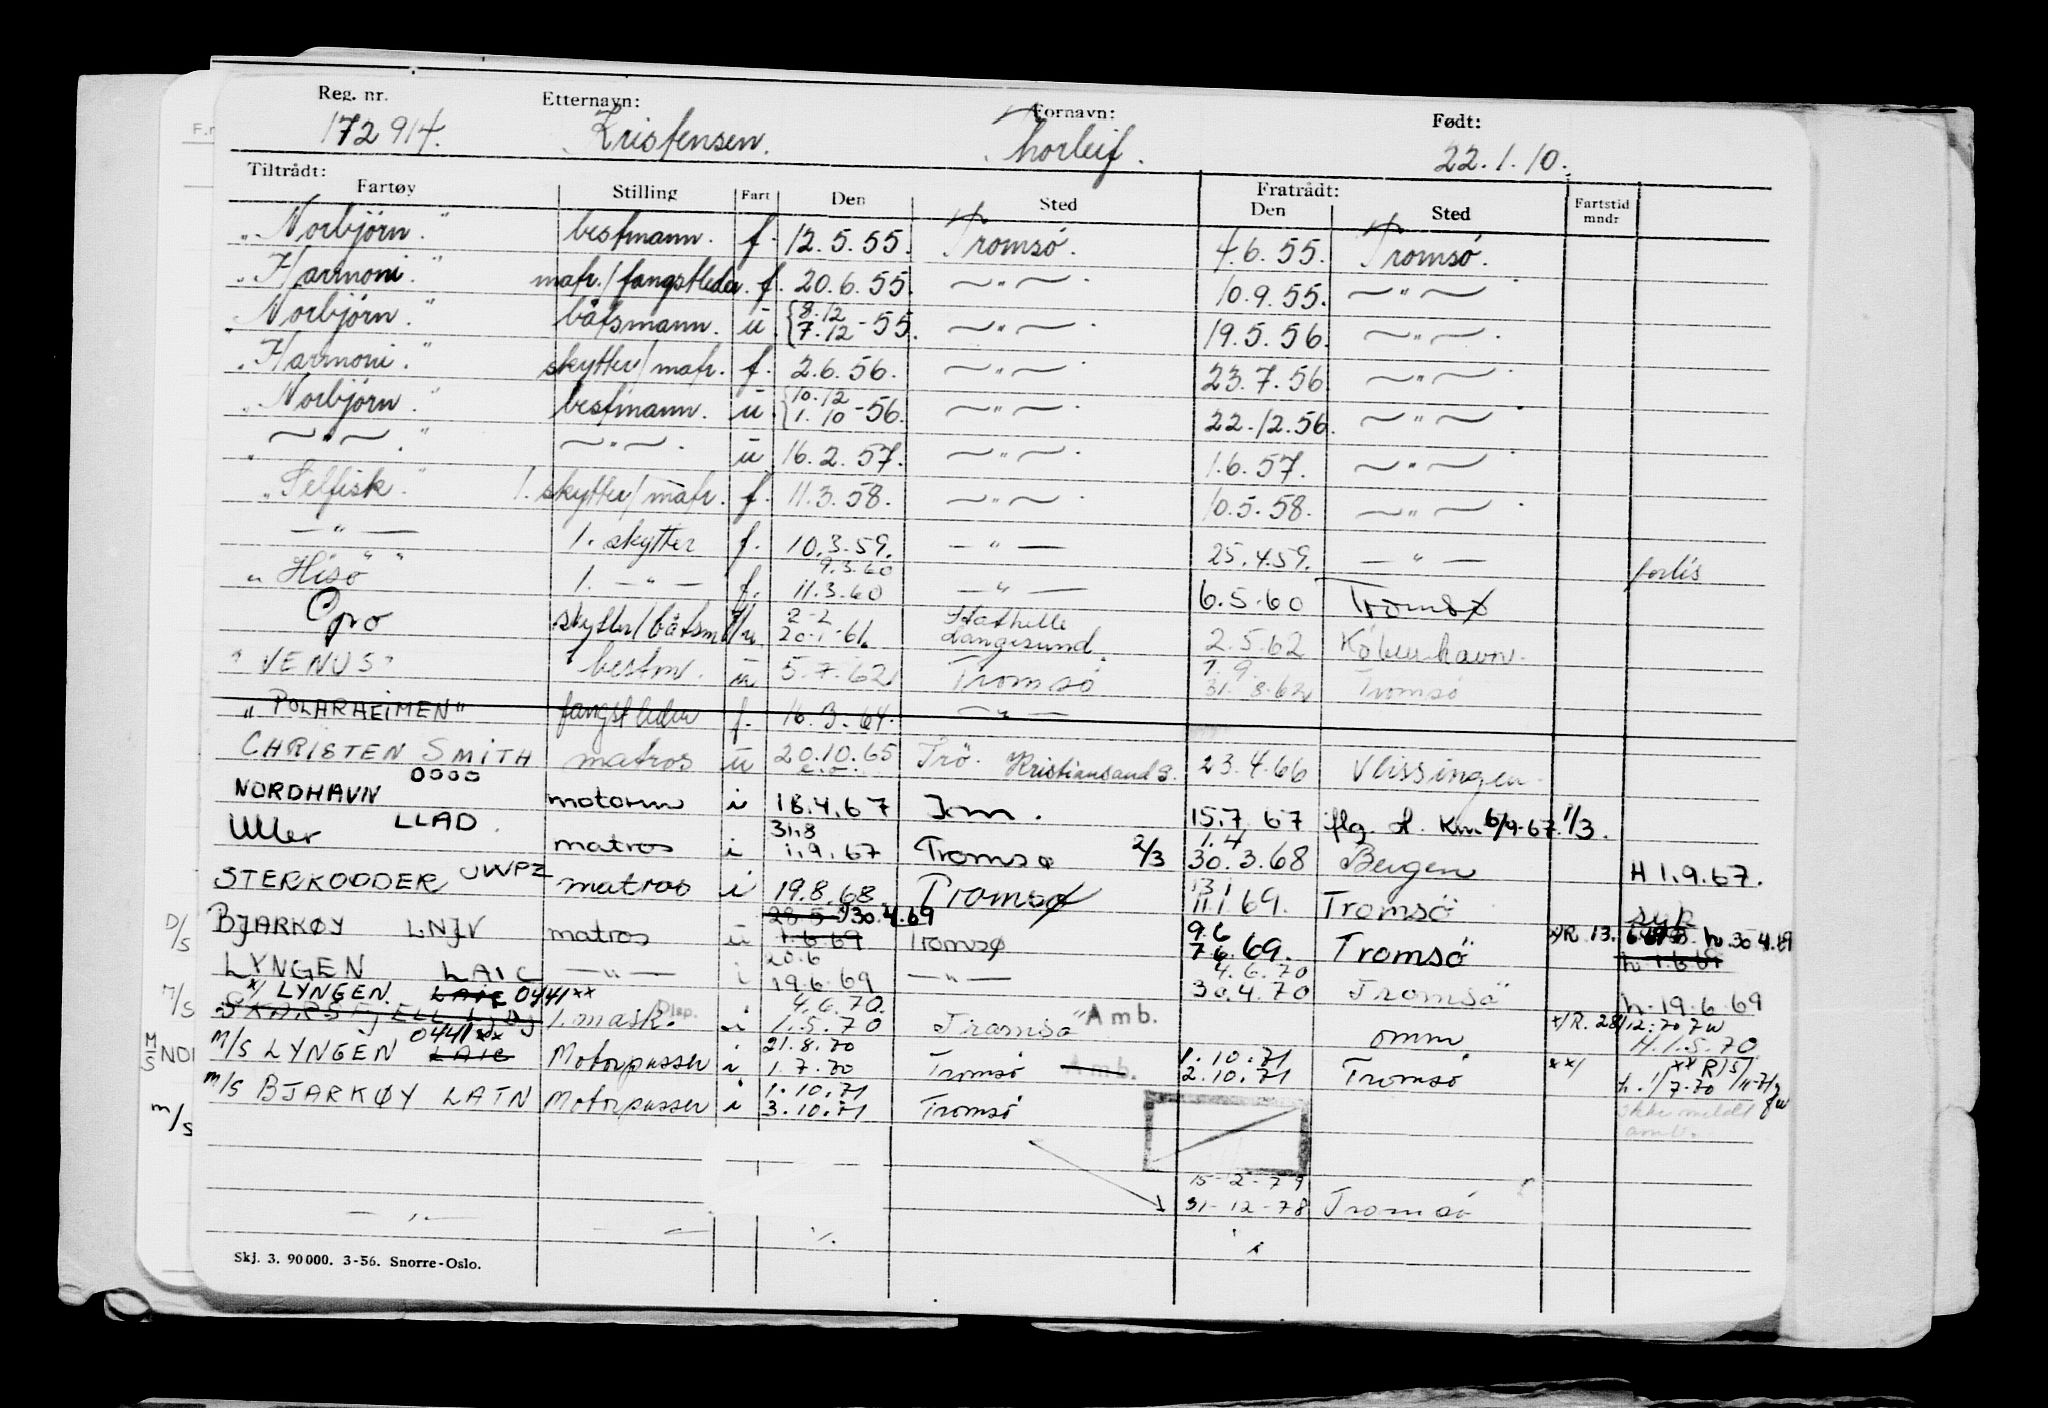 Reg. nr. Etternavn: Fornavn: Født:
172914. Kristensen. Thorleif. 22.1.10.
Tiltrådt: Fratrådt:
Fartøy Stilling Fart Den Sted Den Sted Fartstid mndr
"Norbjørn." bestmann. f. 12.5.55. Tromsø. 4.6.55. Tromsø.
"Harmoni." matr./fangstleder. f. 20.6.55. —"— 10.9.55. —"—
"Norbjørn." båtsmann. u. {8.12 7.12-55. —"— 19.5.56. —"—
"Harmoni." skytter/matr. f. 2.6.56. —"— 23.7.56. —"—
"Norbjørn." bestmann. u. {10.12 1.10-56. —"— 22.12.56. —"—
—"— —"— u 16.2.57. —"— 1.6.57. —"—
"Selfisk." 1. skytter/matr. f. 11.3.58. —"— 10.5.58. —"—
—"— 1. skytter f. 10.3.59. —"— 25.4.59. —"— forlis
"Hisø" 1. —"— f. 9.3.60 11.3.60 —"— 6.5.60 Tromsø
skytter/båtsm 2-2 20-1-61 Stathelle Langesund. 2.5.62 København.
"VENUS" bestm. u 5.7.62 Tromsø 1.9. 31.8.62 Tromsø
"POLARHEIMEN" fangstleder f. 16.3.64. —"—
CHRISTEN SMITH matros u 20.10.65 Trö. Kristiansand S. 23.4.66 Vlissingen.
OOOO
NORDHAVN motorm i 18.4.67 Km. 15.7.67 flg. Km 6/9.67. 1/3.
Uller LLAD. matros i 31.8 1.9.67 Tromsø 2/3 1.4 30.3.68 Bergen H 1.9.67.
STERKODDER JWPZ matros i 19.8.68 Tromsø 13.1 11.1 69. Tromsö syk
BJARKØY LNJV matros u 28.5 30.4.69 1.6.69 Tromsø 9.6 7.6.69. Tromsö x/R. 13. h. 30.4.69
LYNGEN LAIC —"— i 20.6 19.6.69 —"— 4.6.70 30.4.70 Tromsö h. 19.6.69
x/ LYNGEN. LAIC 0441xx
SKARSFJELL 1. mask. Disp. i 4.6.70. 1.5.70 Tromsö Amb. omm x/R. H. 1.5.70
M/S LYNGEN 0441xx LAIC Motorpasser i 21.8.70 1.7.70 Tromsø Amb. 1.10.71 2.10.71 Tromsø xx/ h. 1/7.70
M/S BJARKØY LATN Motorpasser i 1.10.71 3.10.71 Tromsø ikke meldt amb.
15-2-79
31-12-78 Tromsö
D/S
M/S
M/S NOI
M/S
Skj. 3. 90 000. 3-56. Snorre-Oslo.